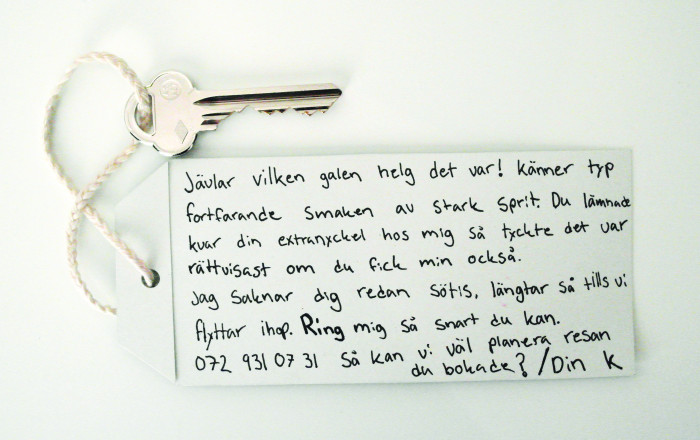 Jävlar vilken galen helg det var! känner typ
fortfarande smaken av stark sprit. Du lämnade
kvar din extranyckel hos mig så tyckte det var
rättvisast om du fick min också.
Jag saknar dig redan sötis, längtar så tills vi
flyttar ihop. Ring mig så snart du kan.
072 931 07 31 Så kan vi väl planera resan
du bokade? /Din K